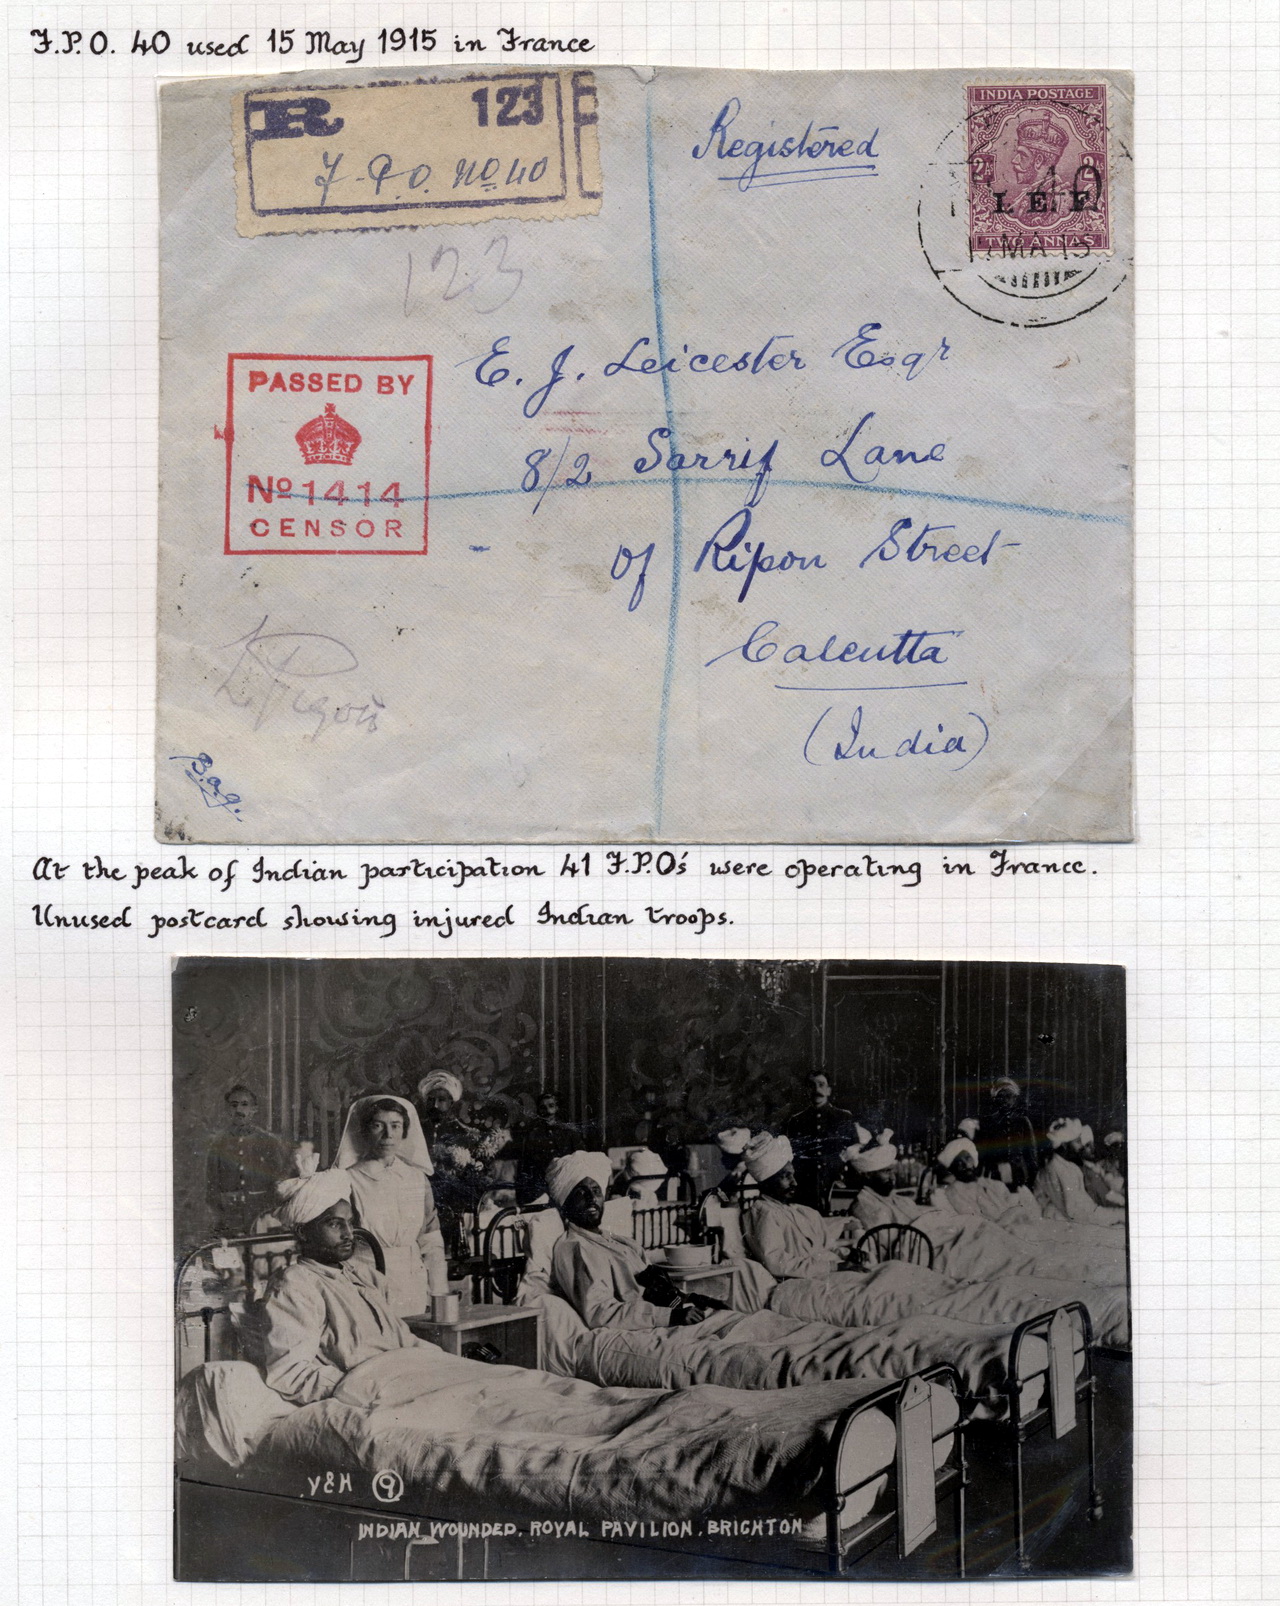 F.P.O. 40 used 15 May 1915 in France
R 123
F.P.O. No 40
Registered
INDIA POSTAGE
2A 2A
I. E. F.
TWO ANNAS
40
MA 15
123
E. J. Leicester Esqr
8/2 Sarrif Lane
of Ripon Street
Calcutta
(India)
PASSED BY
No 1414
CENSOR
At the peak of Indian participation 41 F.P.O's were operating in France.
Unused postcard showing injured Indian troops.
V&H 9
INDIAN WOUNDED. ROYAL PAVILION. BRIGHTON